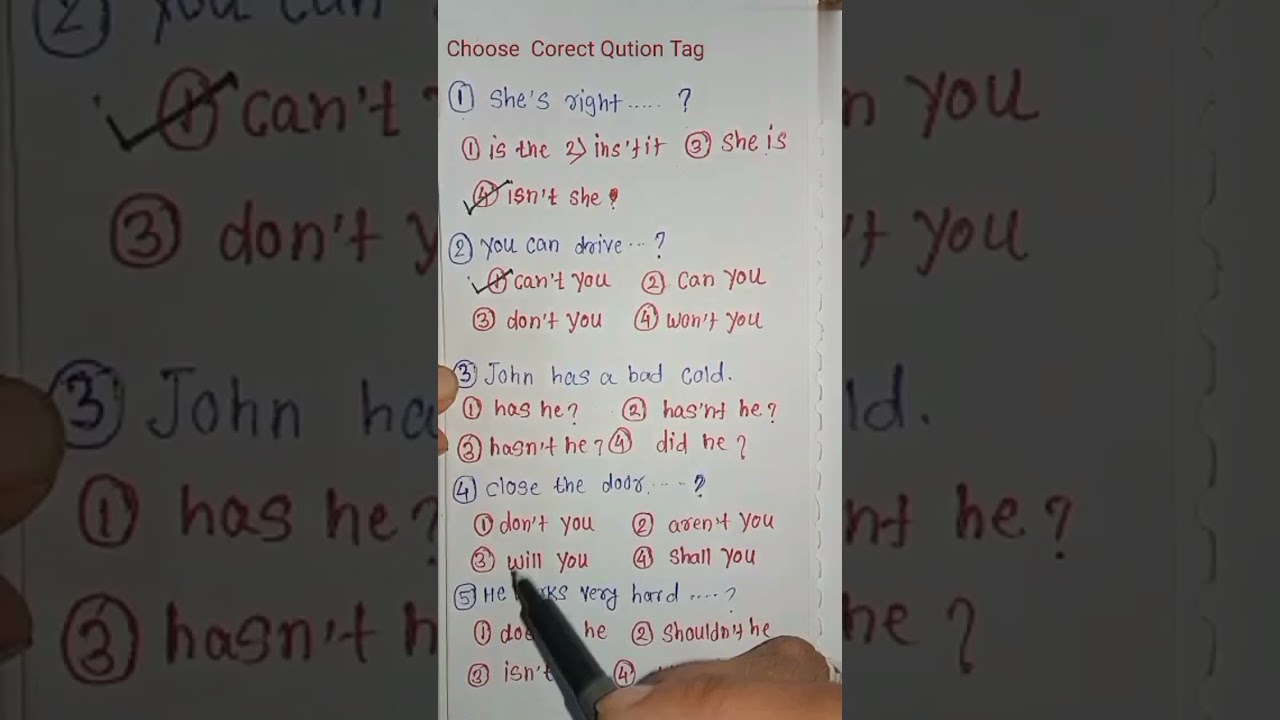 Choose Corect Qution Tag
① She's right..... ?
① is the 2) ins'tit ③ She is
④ isn't she ?
② You can drive... ?
① can't you ② can you
③ don't you ④ won't you
③ John has a bad cold.
① has he? ② has'nt he?
③ hasn't he? ④ did he?
④ close the door..... ?
① don't you ② aren't you
③ will you ④ shall you
⑤ He very hard .... ?
① he ② shouldn't he
③ isn't ④